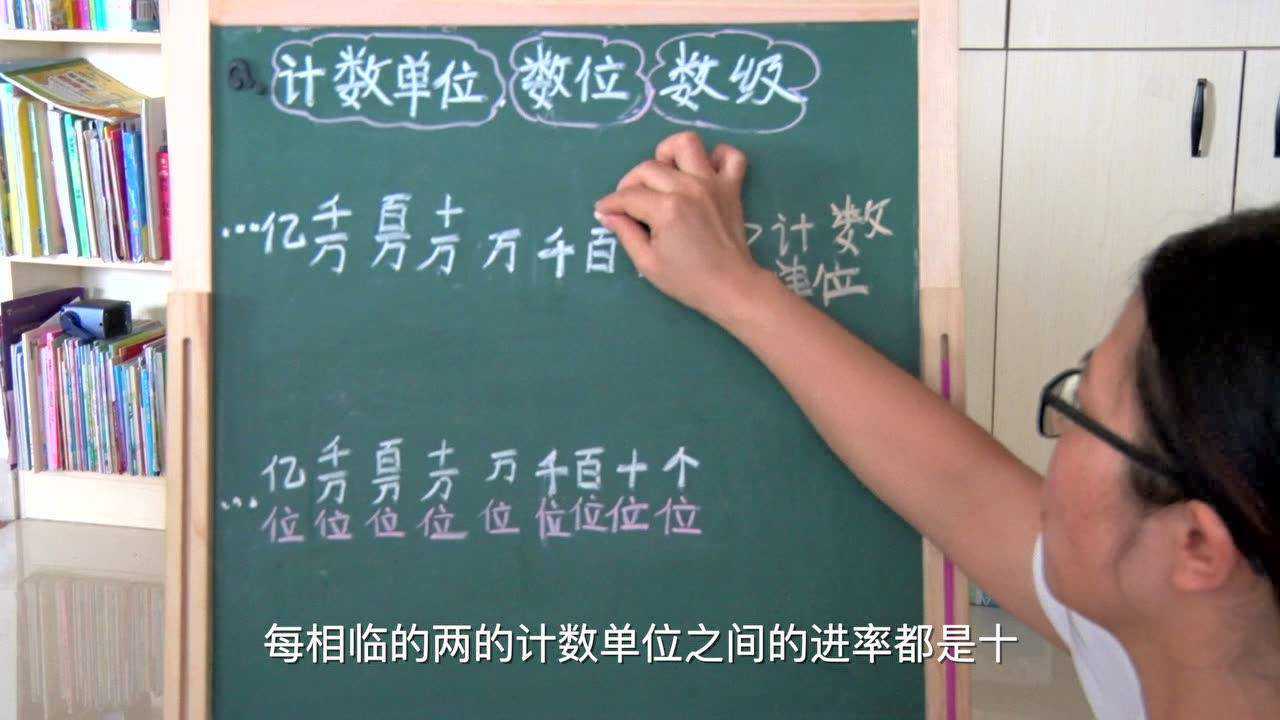 计数单位、数位、数级
…亿 千万 百万 十万 万 千 百
计数
单位
…亿位 千万位 百万位 十万位 万位 千位 百位 十位 个位
每相临的两的计数单位之间的进率都是十